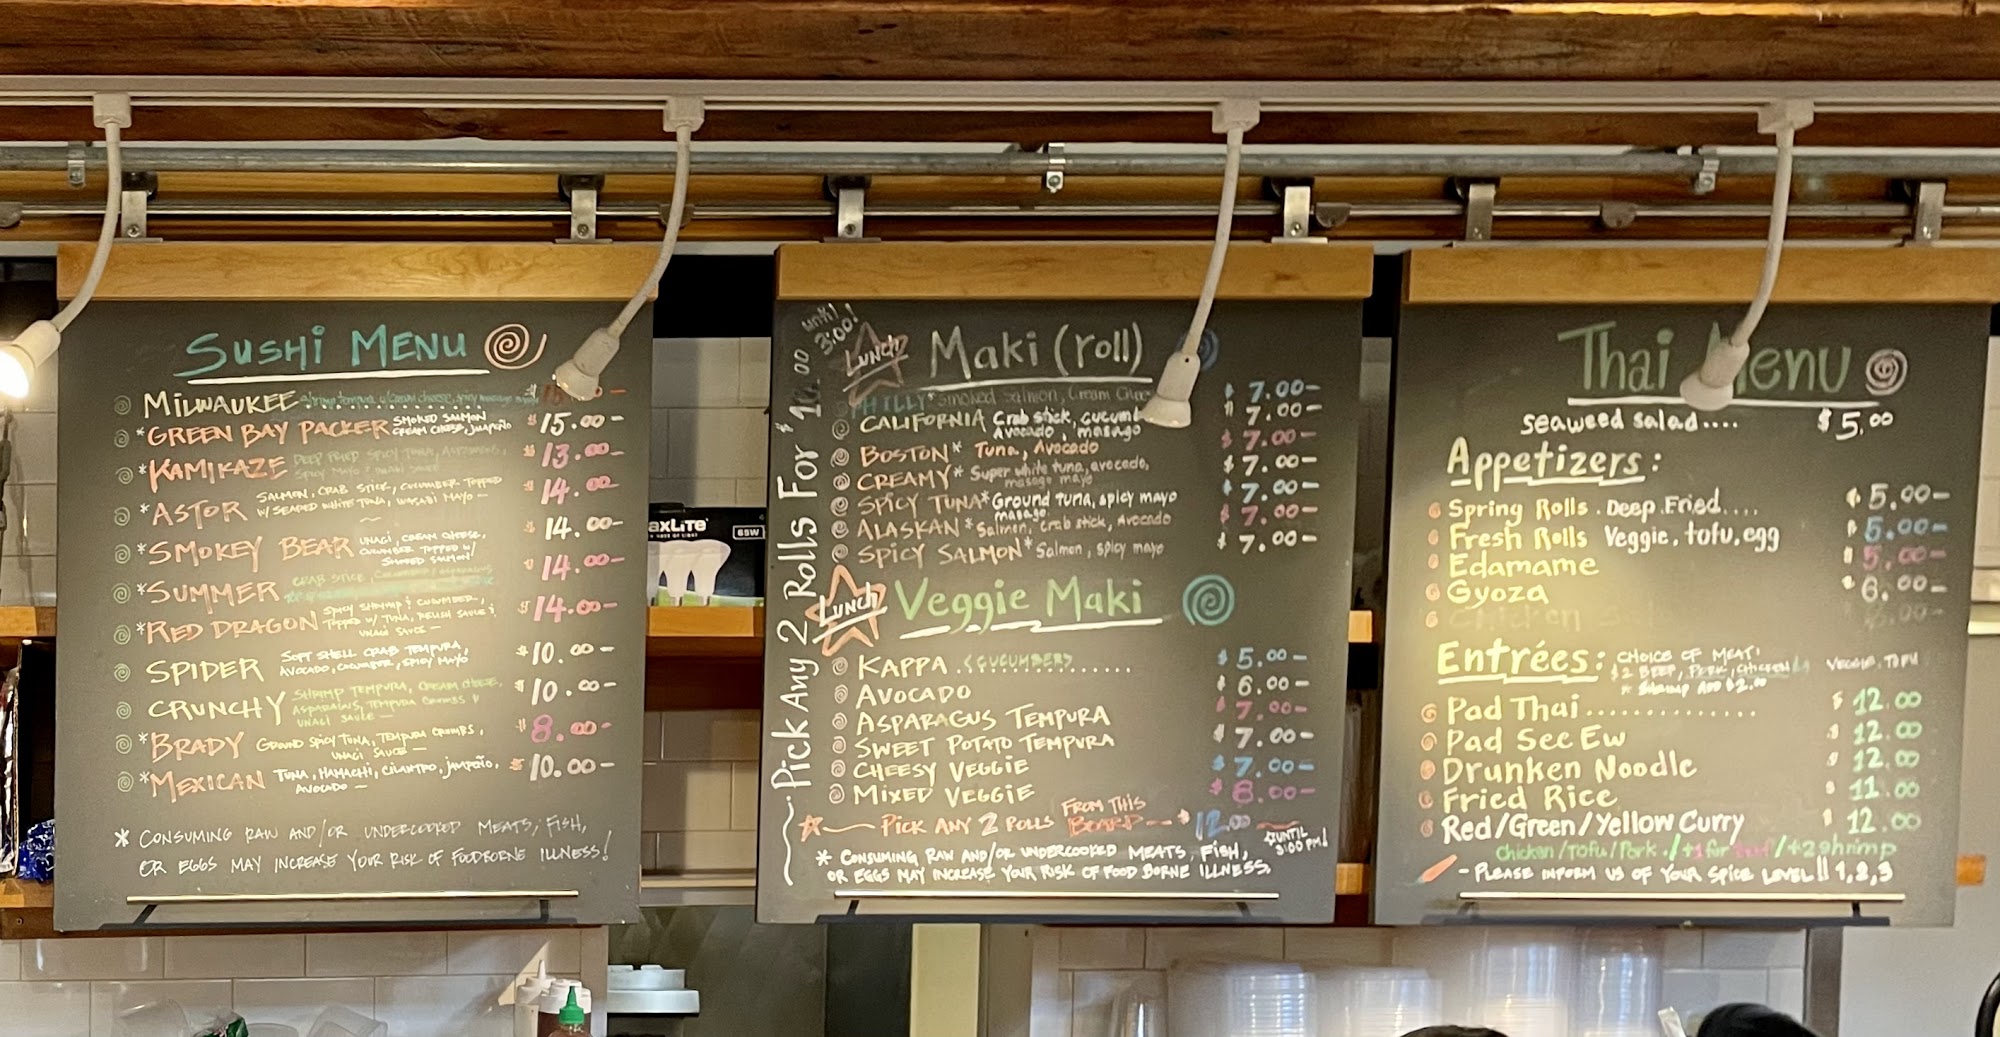 SUSHi MENU
MILWAUKEE shrimp tempura w/cream cheese, spicy masago mayo
*GREEN BAY PACKER SMOKED SALMON $15.00-
CREAM CHEESE, JALAPEÑO
*KAMIKAZE DEEP FRIED SPICY TUNA, $13.00-
SPICY MAYO
*ASTOR SALMON, CRAB STICK, CUCUMBER TOPPED $14.00-
W/ SEARED WHITE TUNA, WASABI MAYO —
*SMOKEY BEAR UNAGI, CREAM CHEESE, $14.00-
CUCUMBER TOPPED W/
SMOKED SALMON
*SUMMER CRAB STICK, $14.00-
*RED DRAGON SPICY SHRIMP & CUCUMBER, $14.00-
TOPPED W/ TUNA,
UNAGI SAUCE —
SPIDER SOFT SHELL CRAB TEMPURA, $10.00-
AVOCADO, CUCUMBER, SPICY MAYO
CRUNCHY SHRIMP TEMPURA, CREAM CHEESE, $10.00-
ASPARAGUS, TEMPURA CRUMBS &
UNAGI SAUCE —
*BRADY GROUND SPICY TUNA, TEMPURA CRUMBS, $8.00-
UNAGI SAUCE —
*MEXICAN TUNA, HAMACHI, CILANTRO, JALAPEÑO, $10.00-
AVOCADO —
* CONSUMING RAW AND/OR UNDERCOOKED MEATS, FISH,
OR EGGS MAY INCREASE YOUR RISK OF FOODBORNE ILLNESS!
axLite
65W
~Pick Any 2 Rolls For $1 .00
until
3:00!
LUNCH
Maki (roll)
PHILLY* Smoked Salmon, Cream $7.00-
CALIFORNIA Crab stick, cucumb $7.00-
Avocado, masago
BOSTON* Tuna, Avocado $7.00-
CREAMY* Super white tuna, avocado, $7.00-
masago mayo
SPICY TUNA* Ground tuna, spicy mayo $7.00-
masago
ALASKAN* Salmon, Crab stick, Avocado $7.00-
SPICY SALMON* Salmon, spicy mayo $7.00-
LUNCH
Veggie Maki
KAPPA (CUCUMBERS ....... $5.00-
AVOCADO $6.00-
ASPARAGUS TEMPURA $7.00-
SWEET POTATO TEMPURA $7.00-
CHEESY VEGGIE $7.00-
MIXED VEGGIE $8.00-
PICK ANY 2 ROLLS FROM THIS BOARD — $12.00
UNTIL
3:00 PM!
* CONSUMING RAW AND/OR UNDERCOOKED MEATS, FISH,
OR EGGS MAY INCREASE YOUR RISK OF FOOD BORNE ILLNESS.
Thai Menu
seaweed salad.... $5.00
Appetizers:
Spring Rolls . Deep Fried.... $5.00-
Fresh Rolls Veggie, tofu, egg $5.00-
Edamame $5.00-
Gyoza $6.00-
Entrées: CHOICE OF MEAT: VEGGIE, TOFU
$2 BEEF, PORK, CHICKEN
* SHRIMP ADD $2.00
Pad Thai.............. $12.00
Pad See Ew $12.00
Drunken Noodle $12.00
Fried Rice $11.00
Red/Green/Yellow Curry $12.00
chicken/Tofu/Pork./+1 for Beef/+2 shrimp
- PLEASE INFORM US OF YOUR SPICE LEVEL!! 1,2,3